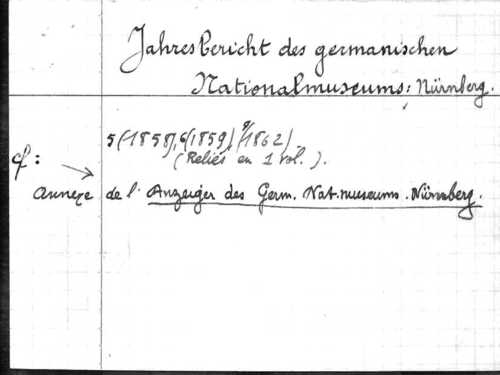 Jahresbericht des germanischen
Nationalmuseums: Nürnberg.
5(1858), 6(1859), 9(1862)
(Reliés en 1 vol.).
cf:
annexe de l'Anzeiger des Germ. Nat. museums. Nürnberg.